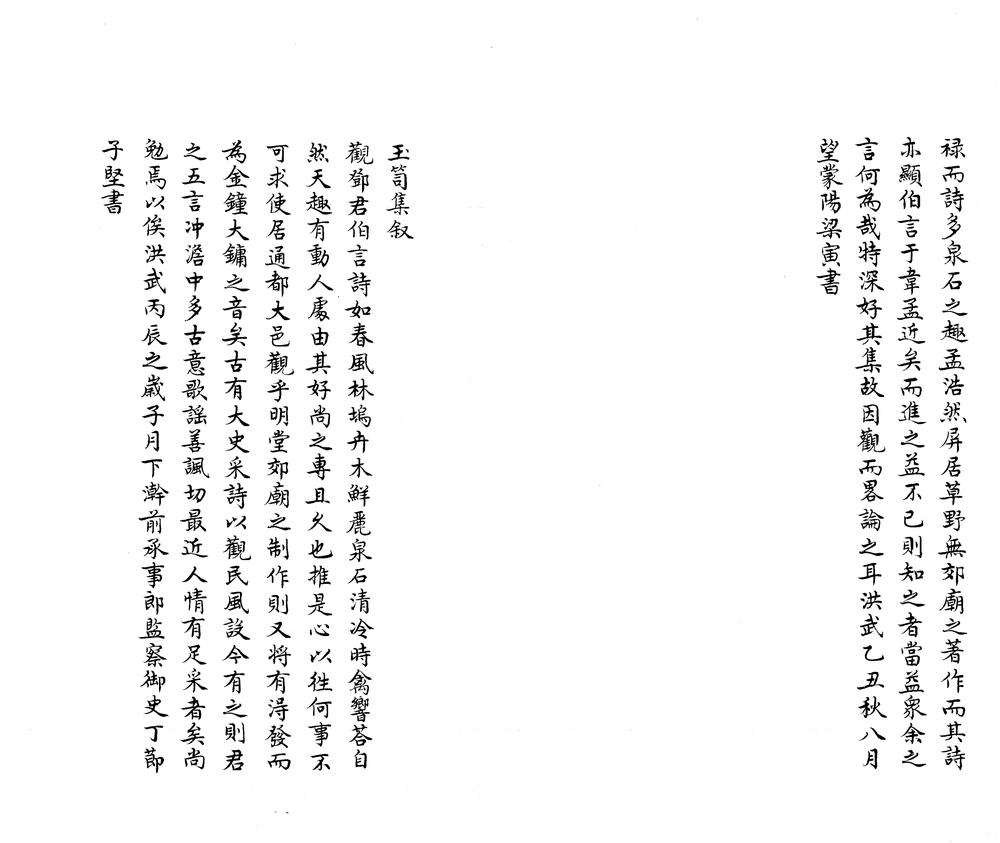 禄而詩多泉石之趣孟浩然屏居草野無郊廟之著作而其詩
亦顯伯言于韋孟近矣而進之益不已則知之者當益衆余之
言何為哉特深好其集故因觀而畧論之耳洪武乙丑秋八月
望蒙陽梁寅書
玉笥集叙
觀鄧君伯言詩如春風林塢卉木鮮麗泉石清冷時禽響荅自
然天趣有動人處由其好尚之專且久也推是心以徃何事不
可求使居通都大邑觀乎明堂郊廟之制作則又将有淂發而
為金鐘大鏞之音矣古有大史采詩以觀民風設今有之則君
之五言冲澹中多古意歌謡善諷切最近人情有足采者矣尚
勉焉以俟洪武丙辰之嵗子月下澣前承事郎監察御史丁節
子堅書